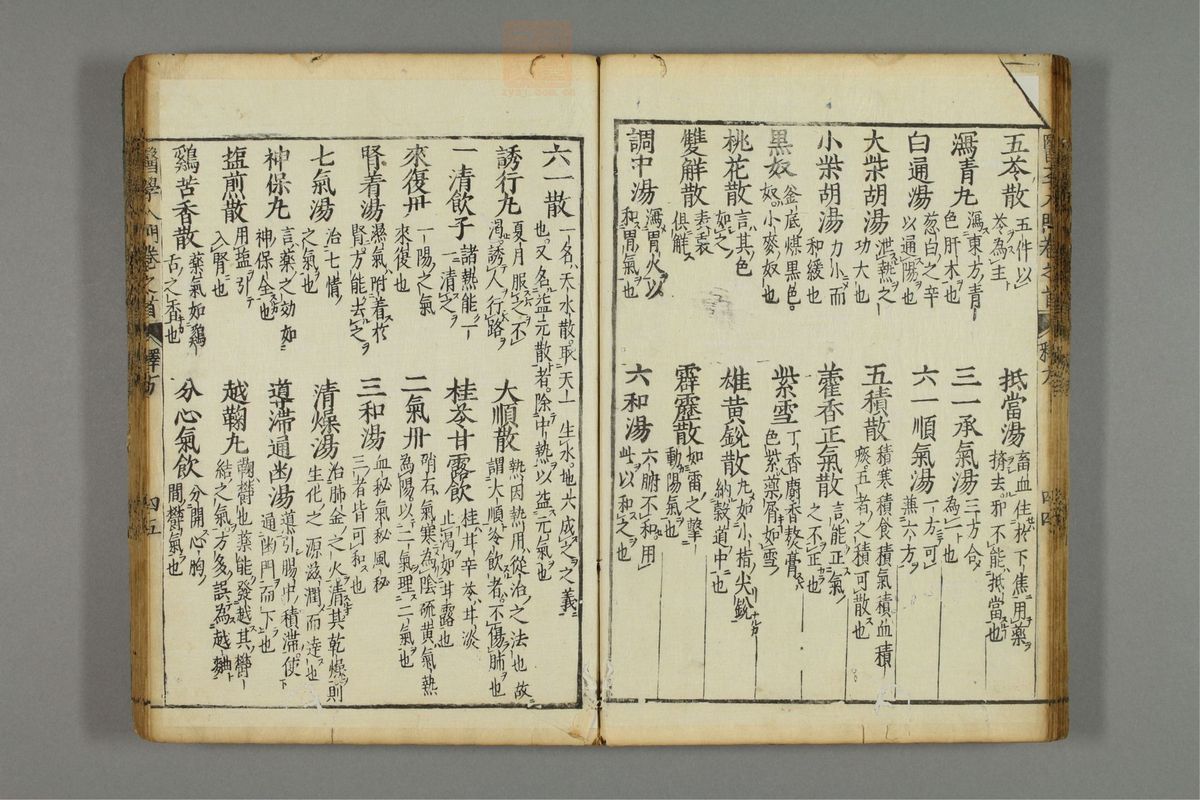 五苓散 五件以苓為主
抵當湯 畜血住於下焦用藥擠去邪不能抵當也
瀉青丸 瀉東方青色肝木也
三一承氣湯 三方合為一也
白通湯 葱白之辛以通陽也
六一順氣湯 一方可兼六方
大柴胡湯 泄熱之功大也
五積散 積寒積食積氣積血積痰五者之積可散也
小柴胡湯 力小而和緩也
藿香正氣散 言能正氣之不正也
黒奴 釜底煤黒色奴小麥奴也
紫雪 丁香麝香熬膏色紫藥屑如雪
桃花散 言其色如之
雄黄鋭散 丸如小指尖鋭納穀道中也
雙解散 表裏俱解
霹靂散 如雷之擊動陽氣也
調中湯 瀉胃火以和胃氣也
六和湯 六腑不和用此以和之也
醫學入門卷之首 釋方 四四
六一散 一名天水散取天一生水地六成之之義也又名益元散者除中熱以益元氣也
誘行丸 夏月服之不渇誘人行路
大順散 熱因熱用從治之法也故謂大順冷飲者不傷肺也
一清飲子 諸熱能一一清之
桂苓甘露飲 桂甘辛苓甘淡止渇如甘露也
來復丹 一陽之氣來復也
二氣丹 硝石氣寒為陰硫黄氣熱為陽以二氣理二氣也
腎着湯 濕氣附着於腎方能去之
三和湯 血秘氣秘風秘三者皆可和也
七氣湯 治七情之氣也
清燥湯 治肺金之火清其乾燥則生化之源滋潤而達也
神保丸 言藥之効如神保全也
導滯通幽湯 導引腸中積滯使通幽門而下也
塩煎散 用塩引入腎也
越鞠丸 鞠欝也藥能發越其欝結之氣也方多誤為越麯
鷄舌香散 藥氣如鷄舌之香也
分心氣飲 分開心胸間欝氣也
醫學入門卷之首 釋方 四五